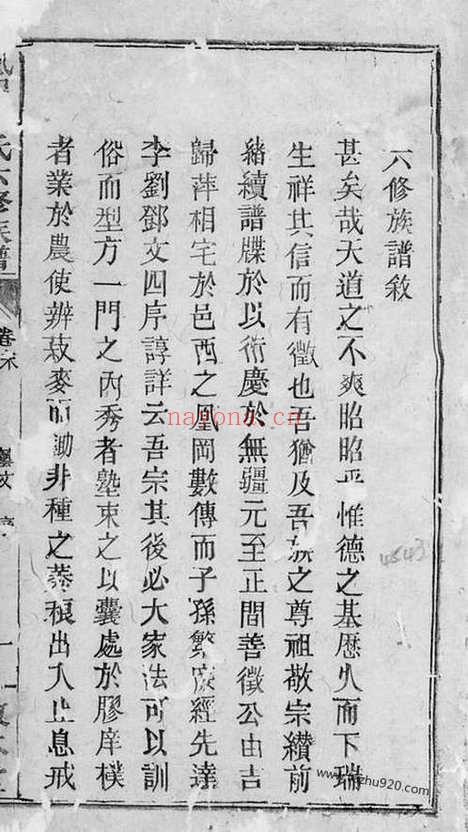 六修族譜敘
甚矣哉天道之不爽昭昭乎惟德之基歷久而下瑞
生祥其信而有徵也吾猶及吾族之尊祖敬宗纘前
緒續譜牒於以衍慶於無疆元至正間善徵公由吉
歸萍相宅於邑西之鳳岡數傳而子孫繁庶經先達
李劉鄧文四序諄詳云吾宗其後必大家法可以訓
俗而型方一門之內秀者塾束之以囊處於膠庠樸
者業於農使辨菽麥而鋤非種之莠稂出入止息戒
氏六修族譜
卷末
藝文
序
一
nayona.cn
4543
www.jzhu920.com